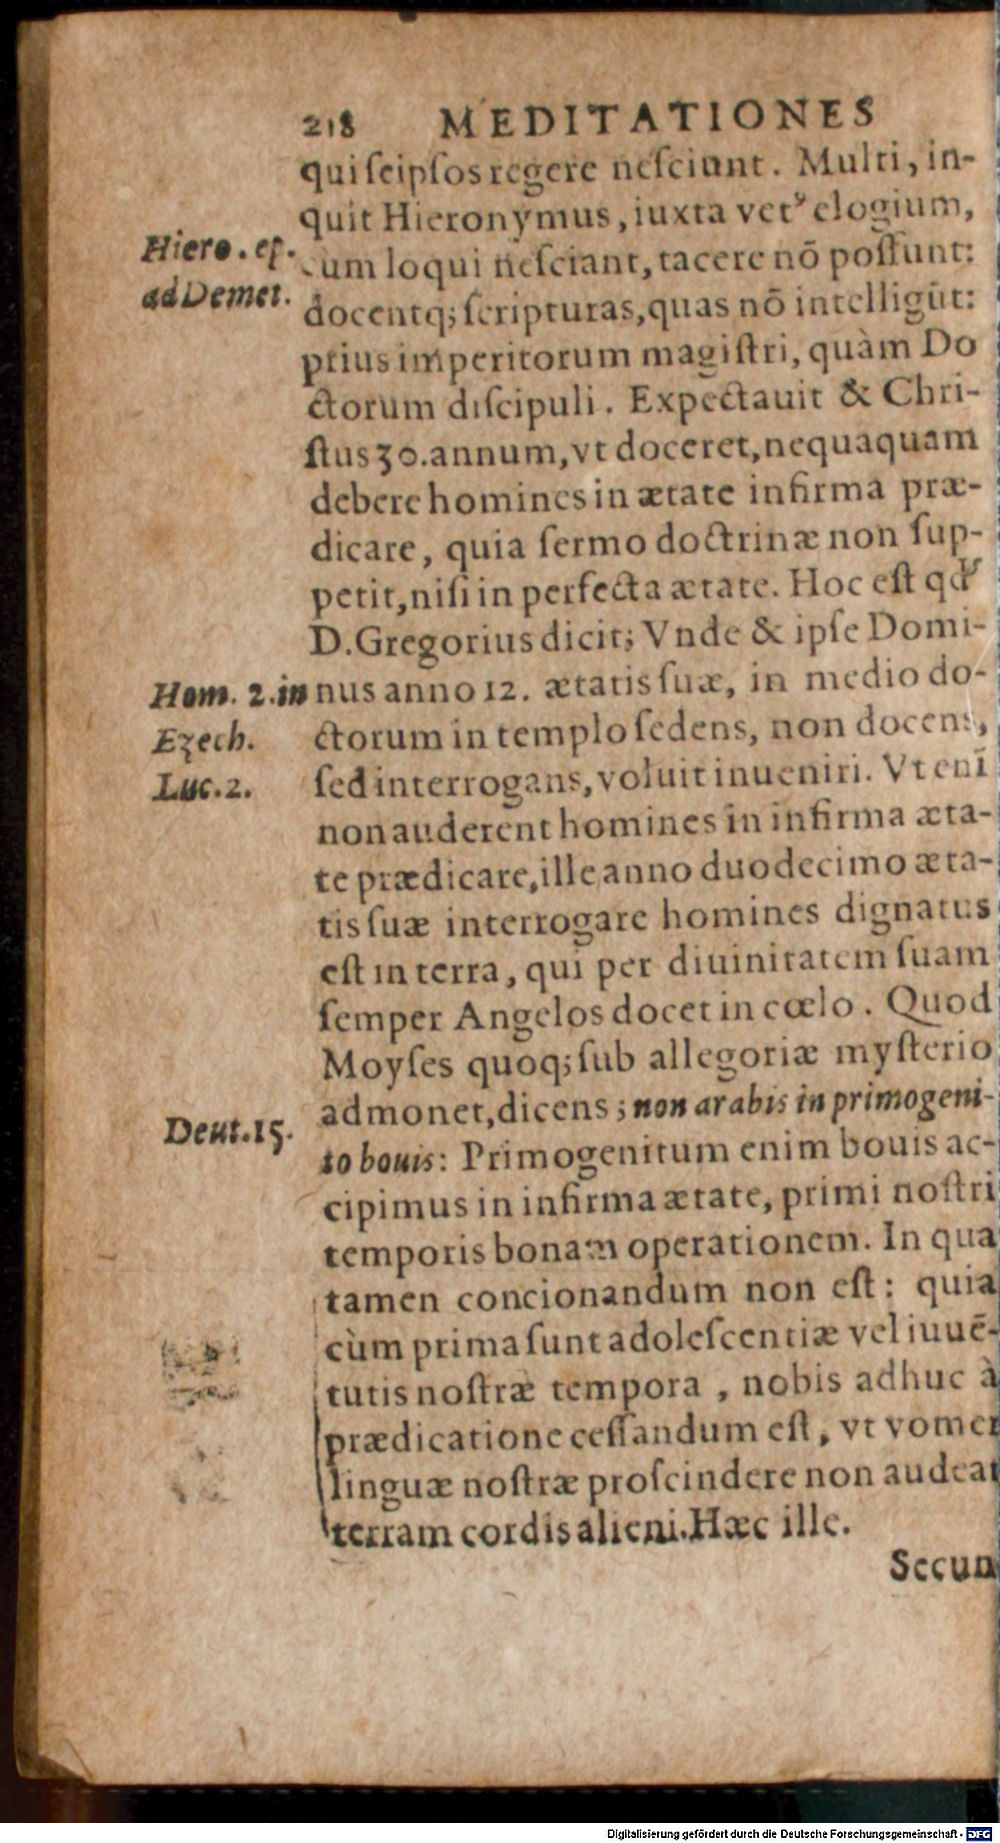 218 MEDITATIONES
qui ſeipſos regere neſciunt. Multi, in-
quit Hieronymus, iuxta vetꝰ elogium,
Hiero. ep.
cum loqui neſciant, tacere nō poſſunt:
ad Demet.
docentq; ſcripturas, quas nō intelligūt:
prius imperitorum magiſtri, quàm Do
ctorum diſcipuli. Expectauit & Chri-
ſtus 30. annum, vt doceret, nequaquam
debere homines in ætate infirma præ-
dicare, quia ſermo doctrinæ non ſup-
petit, niſi in perfecta ætate. Hoc eſt qđ
D. Gregorius dicit; Vnde & ipſe Domi-
Hom. 2. in
nus anno 12. ætatis ſuæ, in medio do-
Ezech.
ctorum in templo ſedens, non docens,
Luc. 2.
ſed interrogans, voluit inueniri. Vt enī
non auderent homines in infirma æta-
te prædicare, ille anno duodecimo æta-
tis ſuæ interrogare homines dignatus
eſt in terra, qui per diuinitatem ſuam
ſemper Angelos docet in cœlo. Quod
Moyſes quoq; ſub allegoriæ myſterio
admonet, dicens; non arabis in primogeni-
Deut. 15.
to bouis: Primogenitum enim bouis ac-
cipimus in infirma ætate, primi noſtri
temporis bonam operationem. In qua
tamen concionandum non eſt: quia
cùm prima ſunt adoleſcentiæ vel iuuē-
tutis noſtræ tempora, nobis adhuc à
prædicatione ceſſandum eſt, vt vomer
linguæ noſtræ proſcindere non audeat
terram cordis alieni. Hæc ille.
Secun
Digitalisierung gefördert durch die Deutsche Forschungsgemeinschaft - DFG